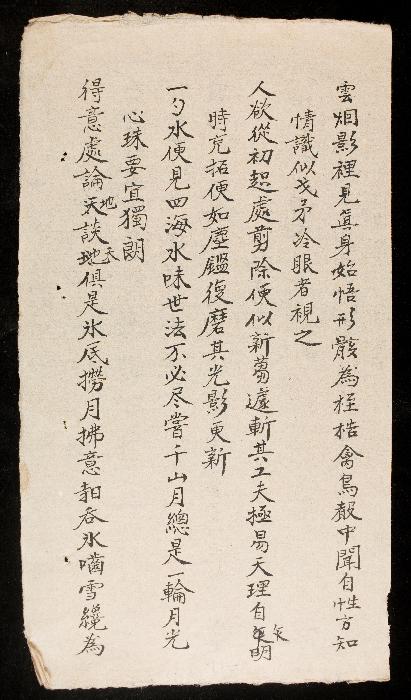 雲烟影裡見眞身始悟形骸為桎梏禽鳥聲中聞自性方知
情識似戈矛冷眼者視之
人欲從初起處剪除便似新蒭遽斬其工夫極易天理自乍明
時充拓便如塵鑑復磨其光影更新
一勺水便見四海水味世法不必尽嘗千山月總是一輪月光
心珠要宜獨朗
得意處論地談天俱是水底撈月拂意時吞氷嚙雪纔為